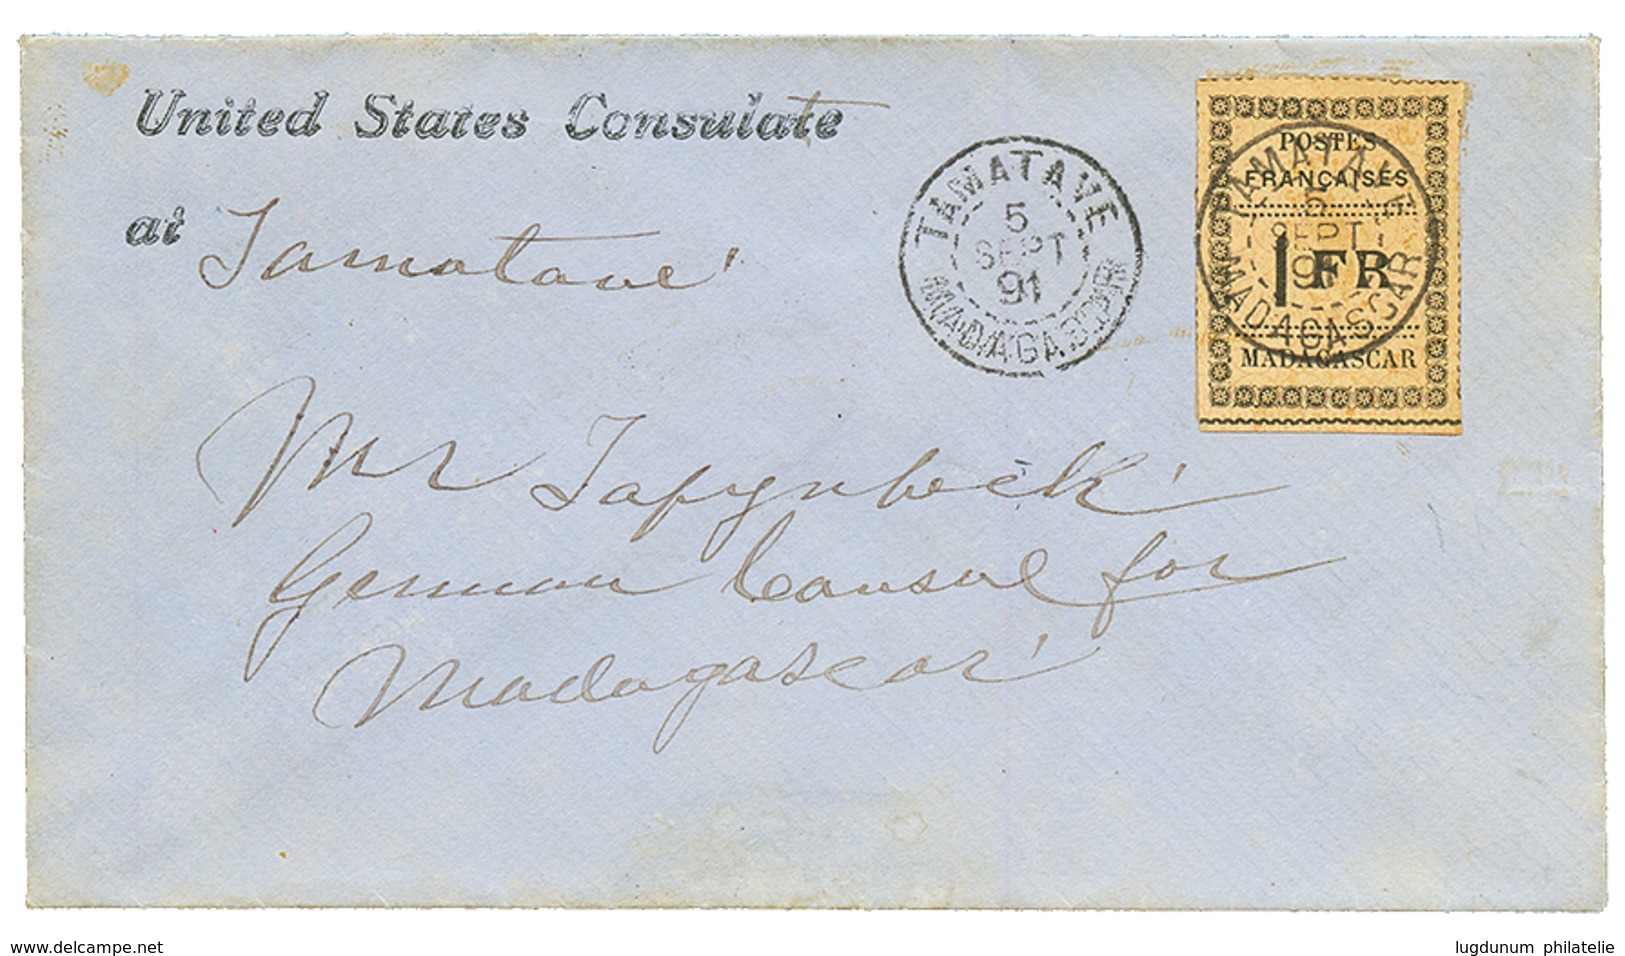 United States Consulate
at Tamatave
TAMATAVE
5
SEPT
91
MADAGASCAR
POSTES
FRANÇAISES
1 FR
MADAGASCAR
TAMATAVE
5
SEPT
91
MADAGASCAR
Mr
German Consul for
Madagascar
www.delcampe.net
lugdunum philatelie